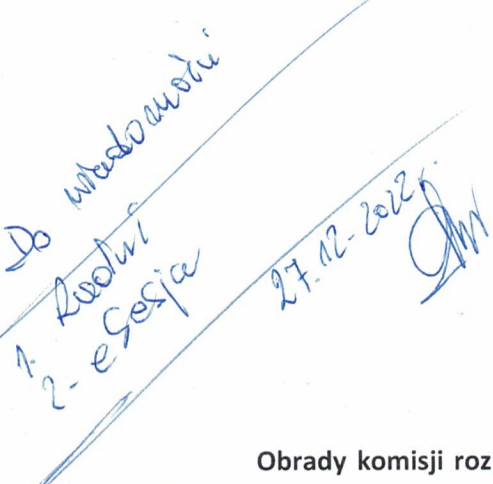 Do wiadomości
1. Radni
2- eSesja
27.12-2022r.
Obrady komisji roz